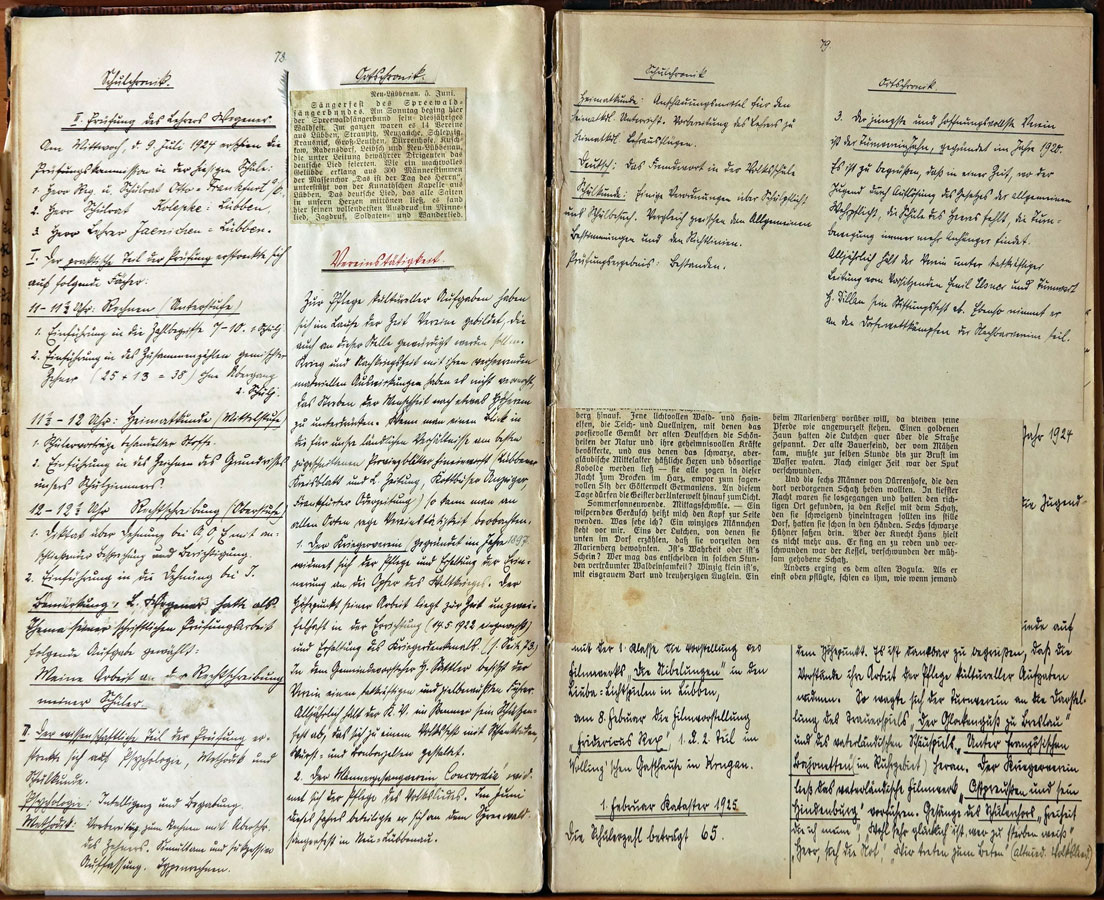 78
Schulchronik.
II. Prüfung des Lehrers Wegener.
Am Mittwoch, d. 9. Juli 1924 erschien die
Prüfungskommission in der hiesigen Schule:
1. Herr Reg. u. Schulrat Otto = Frankfurt
2. Herr Schulrat Kolepke = Lübben.
3. Herr Lehrer Jaenichen = Lübben.
I. Der praktische Teil der Prüfung erstreckte sich
auf folgende Fächer:
Uhr: Rechnen (Unterstufe)
1. Einführung in die Zahlbegriffe 7-10. 1. Schulj.
2. Einführung in das Zusammenzählen gemischter
Zehner (25 + 13 = 38) ohne Übergang
2. Schulj.
12 Uhr: Heimatkunde (Mittelstufe)
1. Schülervorträge behandelter Stoffe.
2. Einführung in das Zeichnen des Grundrisses
unsers Schulzimmers.
Uhr Rechtschreibung (Oberstufe)
1. Diktat über Dehnung bei mit an-
schließender Besprechung und Berichtigung
2. Einführung in die Dehnung bei J.
Bemerkung: L. Wegener hatte als
Thema seiner schriftlichen Prüfungsarbeit
folgende Aufgabe gewählt:
Meine Arbeit an der Rechtschreibung
meiner Schüler.
II. Der wissenschaftliche Teil der Prüfung er-
streckte sich auf Psychologie, Methodik und
Schulkunde.
Psychologie: Intelligenz und Begabung.
Methodik: Vorbereitung zum Rechnen mit Überschr.
des Zehners. Simultane und sukzessive
Auffassung. Typenrechnen.
Ortschronik.
Neu-Lübbenau. 5. Juni.
Sängerfest des Spreewald-
sängerbundes. Am Sonntag beging hier
der Spreewaldsängerbund sein diesjähriges
Waldfest. Im ganzen waren es 14 Vereine
aus Lübben, Straupitz, Neuzauche, Schlepzig,
Krausnick, Groß-Leuthen, Dürrenhofe, Kusch-
kow, Radensdorf, Leibsch und Neu-Lübbenau,
die unter Leitung bewährter Dirigenten das
deutsche Lied feierten. Wie ein machtvolles
Gelübde erklang aus 300 Männerstimmen
der Massenchor „Das ist der Tag des Herrn",
unterstützt von der Kunathschen Kapelle aus
Lübben. Das deutsche Lied, das alle Saiten
in unsern Herzen mittönen ließ, es fand
hier seinen vollendeten Ausdruck im Minne-
lied, Jagdruf, Soldaten- und Wanderlied.
Vereinstätigkeit.
Zur Pflege kultureller Aufgaben haben
sich im Laufe der Zeit Vereine gebildet, die
auch an dieser Stelle gewürdigt werden sollen.
Krieg und Nachkriegszeit mit ihren verheerenden
materiellen Auswirkungen haben es nicht vermocht,
das Streben der Menschheit nach etwas Höherem
zu unterbinden. Wenn man einen Blick in
die für unsre ländlichen Verhältnisse am besten
zugeschnittenen Provinzblätter hineinwirft (Lübbener
Kreisblatt und L. Zeitung, Kottbuser Anzeiger
Frankfurter Oderzeitung) so kann man an
allen Orten rege Vereinstätigkeit beobachten.
1. Der Kriegerverein, gegründet im Jahre 1897
widmet sich der Pflege und Erhaltung der Erin-
nerung an die Opfer des Weltkrieges. Der
Höhepunkt seiner Arbeit liegt zur Zeit unzwei-
felhaft in der Errichtung (14.5.1922 eingeweiht)
und Erhaltung des Kriegerdenkmals. (s. Seite 73)
In dem Gemeindevorsteher H. Kottler besitzt der
Verein einen tatkräftigen und zielbewußten Führer.
Alljährlich hält der K. V. im Sommer sein Schützen-
fest ab, das sich zu einem Volksfest mit Schenkbuden,
Würst- und Bonbonzelten gestaltet.
2. Der Männergesangverein „Concordia" wid-
met sich der Pflege des Volksliedes. Im Juni
dieses Jahres beteiligte er sich an dem Spreewald-
sängerfest in Neu-Lübbenau.
79
Schulchronik
Heimatkunde: Anschauungsmittel für den
heimatkl. Unterricht. Vorbereitung des Lehrers zu
heimatkl. Lehrausflügen.
Deutsch: Das Fremdwort in der Volksschule
Schulkunde: Einige Verordnungen über Schulpflicht
und Schulbesuch. Vergleich zwischen den Allgemeinen
Bestimmungen und den Richtlinien.
Prüfungsergebnis: Bestanden.
Ortschronik
3. Der jüngste und hoffnungsvollste Verein
ist der Turnverein Jahn, gegründet im Jahre 1920.
Es ist zu begrüßen, daß in einer Zeit, wo der
Jugend durch Auflösung des Gesetzes der allgemeinen
Wehrpflicht, die Schule des Heeres fehlt, die Turn-
bewegung immer mehr Anhänger findet.
Alljährlich hält der Verein unter tatkräftiger
Leitung vom Vorsitzenden Emil Elsner und Turnwart
H. Dillan sein Stiftungsfest ab. Ebenso nimmt er
an den Dorfwettkämpfen der Nachbarvereine teil.
berg hinauf. Jene lichtvollen Wald- und Hain-
elfen, die Teich- und Quellnixen, mit denen das
poesievolle Gemüt der alten Deutschen die Schön-
heiten der Natur und ihre geheimnisvollen Kräfte
bevölkerte, und aus denen das schwarze, aber-
gläubische Mittelalter häßliche Hexen und bösartige
Kobolde werden ließ — sie alle zogen in dieser
Nacht zum Brocken im Harz, empor zum sagen-
vollen Sitz der Götterwelt Germaniens. An diesem
Tage dürfen die Geister der Unterwelt hinauf zum Licht.
Sommersonnenwende. Mittagsschwüle. — Ein
wisperndes Geräusch heißt mich den Kopf zur Seite
wenden. Was sehe ich? Ein winziges Männchen
steht vor mir. Eins der Lutchen, von denen sie
unten im Dorf erzählen, daß sie vorzeiten den
Marienberg bewohnten. Ist's Wahrheit oder ist's
Schein? Wer mag das entscheiden in solchen Stun-
den verträumter Waldeinsamkeit? Winzig klein ist's,
mit eisgrauem Bart und treuherzigen Äuglein. Ein
beim Marienberg vorüber will, da bleiben seine
Pferde wie angewurzelt stehen. Einen goldenen
Zaun hatten die Lutchen quer über die Straße
gespannt. Der alte Bauerfeind, der vom Mähen
kam, mußte zur selben Stunde bis zur Brust im
Wasser waten. Nach einiger Zeit war der Spuk
verschwunden.
Und die sechs Männer von Dürrenhofe, die den
dort verborgenen Schatz heben wollten. In tiefster
Nacht waren sie losgezogen und hatten den rich-
tigen Ort gefunden, ja den Kessel mit dem Schatz,
den sie schweigend hineintragen sollten ins stille
Dorf, hatten sie schon in den Händen. Sechs schwarze
Hühner saßen drin. Aber der Knecht Hans hielt
es nicht mehr aus. Er fing an zu reden und ver-
schwunden war der Kessel, verschwunden der müh-
sam gehobene Schatz.
Anders erging es dem alten Bogula. Als er
einst oben pflügte, schien es ihm, wie wenn jemand
Jahr 1924
die Jugend-
mit der 1. Klasse die Vorstellung des
Filmwerks „Die Nibelungen" in den
Liuba-Lichtspielen in Lübben,
am 8. Februar die Filmvorstellung
„Fridericus Rex" 1. u. 2. Teil im
Wolling'schen Gasthause in Krugau.
1. Februar Kataster 1925
Die Schülerzahl beträgt 65.
auf
dem Höhepunkt. Es ist dankbar zu begrüßen, daß die
Vorstände ihre Arbeit der Pflege kultureller Aufgaben
widmen. So wagte sich der Turnverein an die Darstel-
lung des Trauerspiels „Der Glockenguß zu Breslau"
und des vaterländischen Schauspiels „Unter französischen
Bajonetten" (im Ruhrgebiet) heran. Der Kriegerverein
ließ das vaterländische Filmwerk „Ostpreußen und sein
Hindenburg" vorführen. Gesänge des Schülerchors „Freiheit
die ich meine", „Wohl sehr glücklich ist, wer zu sterben weiß"
„Herr, sieh die Not", „Wir treten zum Beten" (altnied. Volkslied)